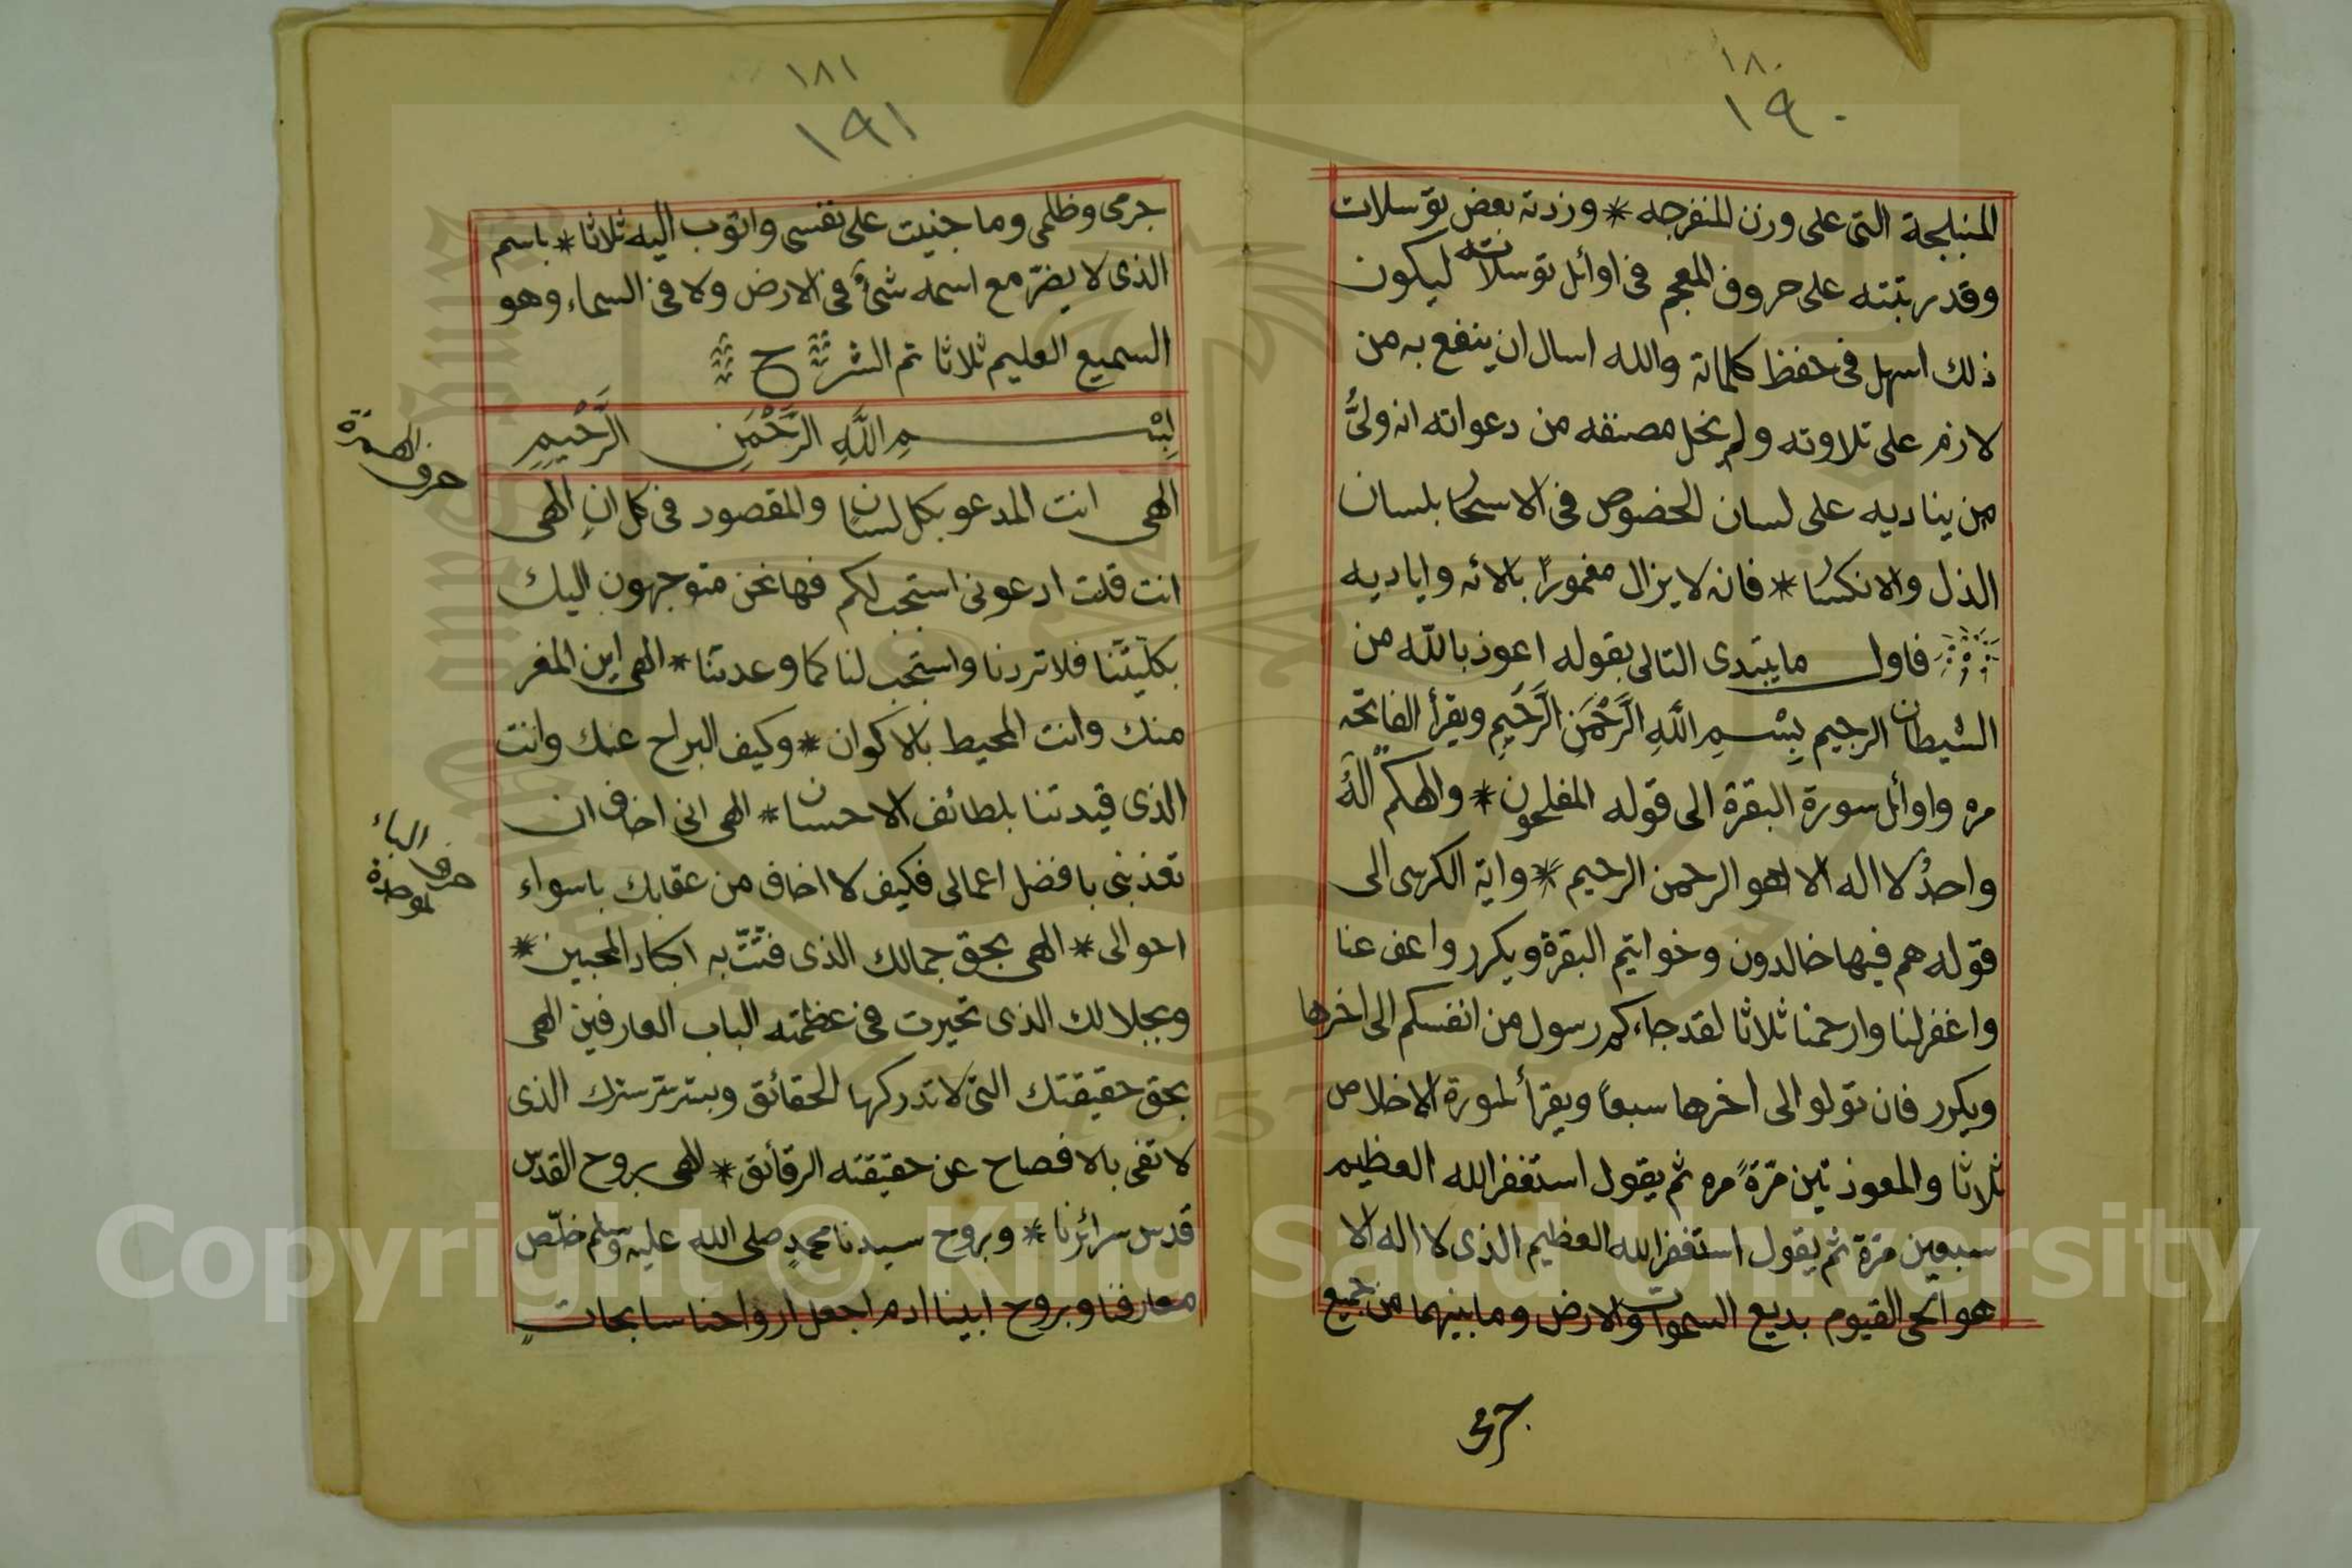 ١٨٠
١٩٠
المنبلجة التى على وزن المنفرجه * وزدته بعض توسلات
وقد رتبته على حروف المعجم فى اوائل توسلاته ليكون
ذلك اسهل فى حفظ كلماته والله اسال ان ينفع به من
لازم على تلاوته ولم يخل مصنفه من دعواته انه ولىُّ
من يناديه على لسان الخضوص فى الاسحار بلسان
الذل والانكسار * فانه لا يزال مغمورًا بالائه واياديه
فاول ما يبتدى التالى بقوله اعوذ بالله من
الشيطان الرجيم بِسْمِ اللَّهِ الرَّحْمَنِ الرَّحِيمِ ويقرأ الفاتحه
مره واوائل سورة البقرة الى قوله المفلحون * والهكم الهٌ
واحدٌ لا اله الا هو الرحمن الرحيم * واية الكرسى الى
قوله هم فيها خالدون وخواتيم البقرة ويكرر واعف عنا
واغفر لنا وارحمنا ثلاثا لقد جاءكم رسول من انفسكم الى اخرها
ويكرر فان تولو الى اخرها سبعاً ويقرأ سورة الاخلاص
ثلاثا والمعوذتين مرّةً مره ثم يقول استغفر الله العظيم
سبعين مرّة ثم يقول استغفر الله العظيم الذى لا اله الا
هو الحى القيوم بديع السموات والارض وما بينهما من جميع
جرمى
١٨١
١٩١
جرمى وظلمى وما جنيت على نفسى واتوب اليه ثلاثا * باسم
الذى لا يضرّ مع اسمه شئٌ فى الارض ولا فى السماء وهو
السميع العليم ثلاثا تم الشرح
بِسْمِ اللَّهِ الرَّحْمَنِ الرَّحِيمِ
حرف الهمزة
الهى انت المدعو بكل لسان والمقصود فى كل انٍ الهى
انت قلت ادعونى استجب لكم فها نحن متوجهون اليك
بكليتنا فلا تردنا واستجب لنا كما وعدتنا * الهى اين المفر
منك وانت المحيط بالاكوان * وكيف البراح عنك وانت
الذى قيدتنا بلطائف الاحسان * الهى انى اخاف ان
حرف الباء الموحدة
تعذبنى بافضل اعمالى فكيف لا اخاف من عقابك باسواء
احوالى * الهى بحق جمالك الذى فتّتّ به اكباد المحبين *
وبجلالك الذى تحيرت فى عظمته الباب العارفين الهى
بحق حقيقتك التى لا تدركها الحقائق وبسر سرك الذى
لا تفى بالافصاح عن حقيقته الرقائق * الهى بروح القدس
قدس سرائرنا * وبروح سيدنا محمدٍ صلى الله عليه وسلم خلّص
معارفنا وبروح ابينا ادم اجعل ارواحنا سابحاتٍ
Copyright © King Saud University
1957